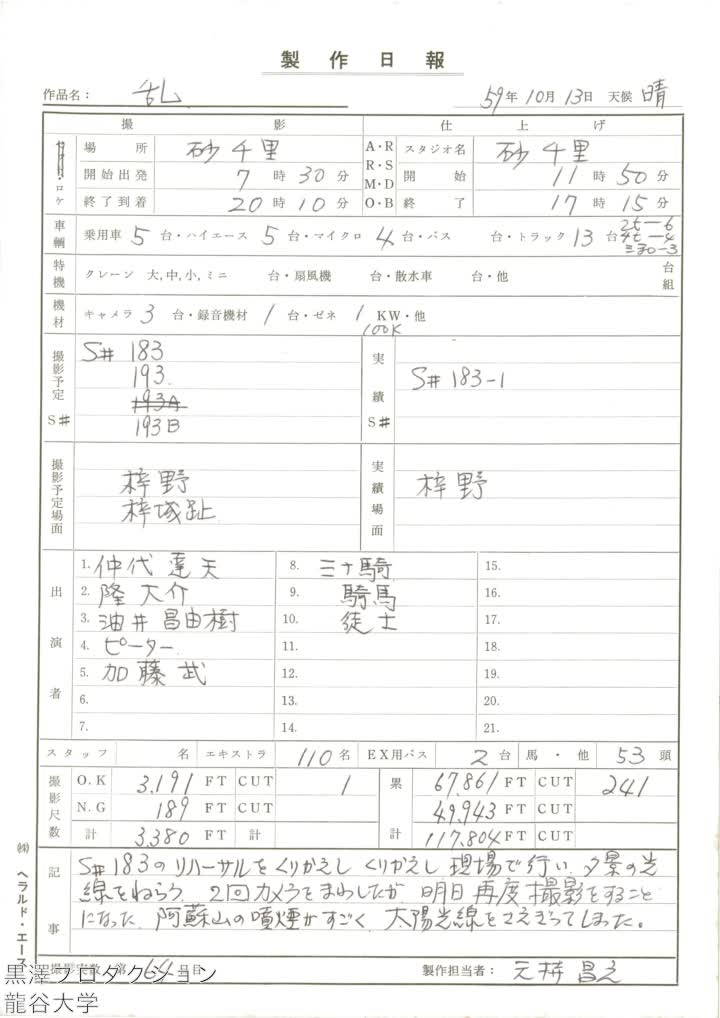 製作日報
作品名： 乱 59年10月13日 天候 晴
撮影 仕上げ
ロケ 場所 砂千里 A・R R・S M・D O・B スタジオ名 砂千里
開始出発 7時30分 開始 11 50分
終了到着 20時10分 終了 17時15分
車輌 乗用車 5 台・ハイエース 5 台・マイクロ 4 台・バス 台・トラック 13 台 2t-6 4t-4
特機 クレーン 大,中,小,ミニ 台・扇風機 台・散水車 台・他 台組
機材 キャメラ 3 台・録音機材 1 台・ゼネ 1 KW・他
100K
撮影予定 S# S# 183 実績 S# S# 183-1
193
193A
193B
撮影予定場面 梓野 実績場面 梓野
梓城趾
出演者
1. 仲代達矢 8. 三十騎 15.
2. 隆大介 9. 騎馬 16.
3. 油井昌由樹 10. 徒士 17.
4. ピーター 11. 18.
5. 加藤武 12. 19.
6. 13. 20.
7. 14. 21.
スタッフ 名 エキストラ 110名 EX用バス 2台 馬・他 53頭
撮影尺数 O.K 3,191 FT CUT 1 累計 67,861 FT CUT 241
N.G 189 FT CUT 49,943 FT CUT
計 3,380 FT 計 117,804 FT CUT
記事 S# 183のリハーサルをくりかえしくりかえし現場で行い、夕景の光
線をねらう。2回カメラをまわしたが、明日再度撮影をすること
になった。阿蘇山の噴煙がすごく、太陽光線をさえぎってしまった。
撮影実数 第64日目 製作担当者： 元持昌之
㈱ ヘラルド・エース
黒澤プロダクション
龍谷大学